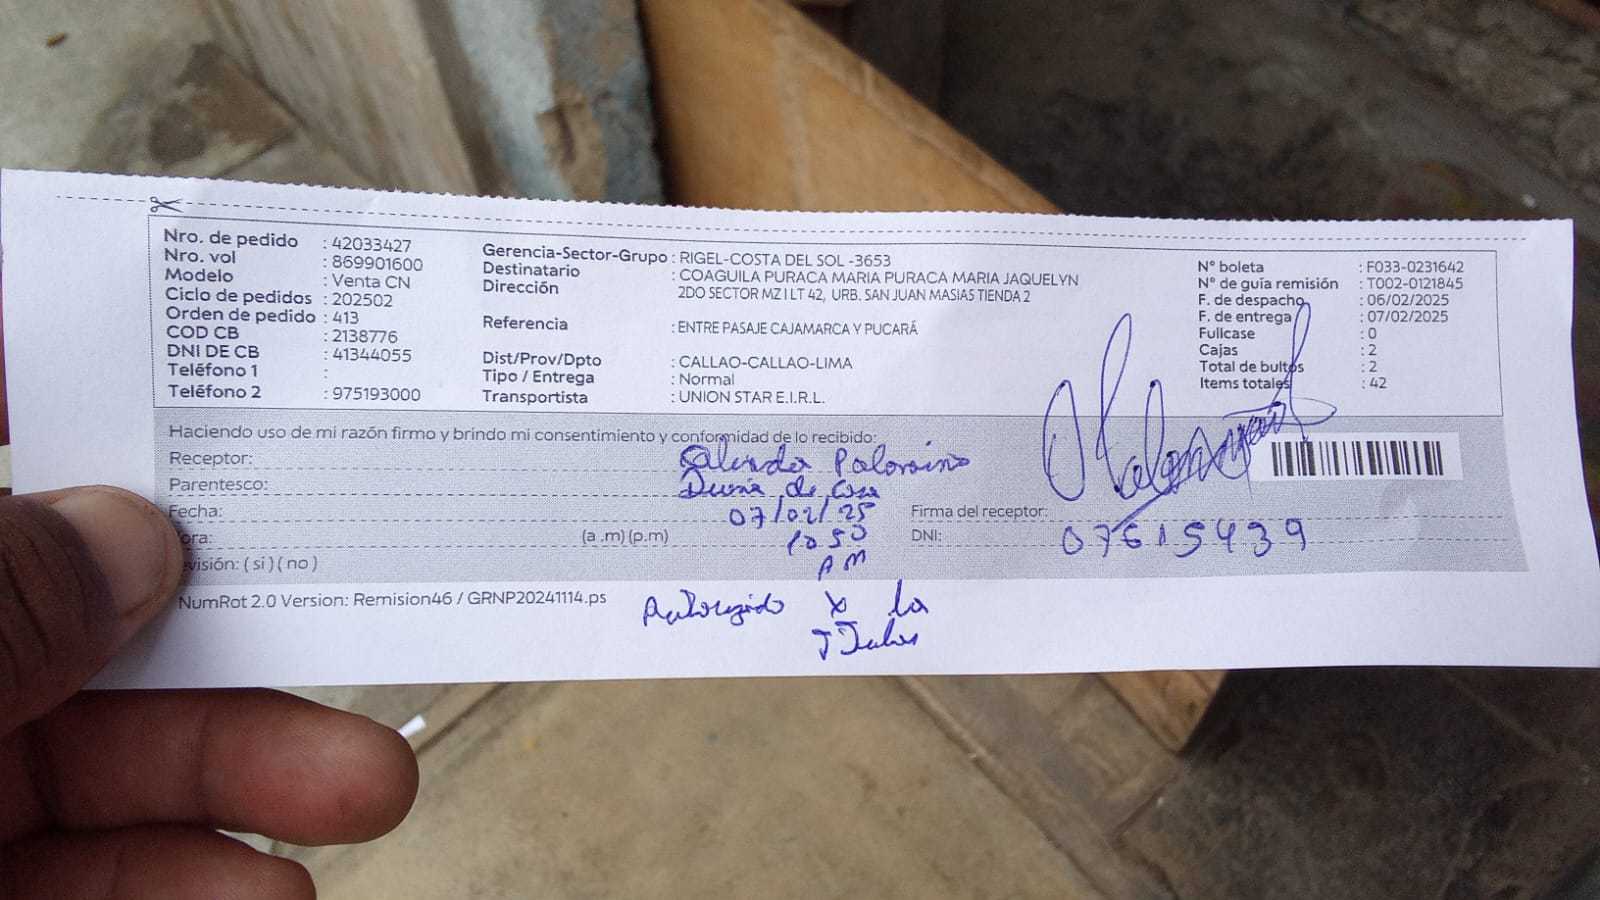 Nro. de pedido : 42033427
Nro. vol : 869901600
Modelo : Venta CN
Ciclo de pedidos : 202502
Orden de pedido : 413
COD CB : 2138776
DNI DE CB : 41344055
Teléfono 1 :
Teléfono 2 : 975193000
Gerencia-Sector-Grupo : RIGEL-COSTA DEL SOL -3653
Destinatario : COAGUILA PURACA MARIA PURACA MARIA JAQUELYN
Dirección 2DO SECTOR MZ I LT 42, URB. SAN JUAN MASIAS TIENDA 2
Referencia : ENTRE PASAJE CAJAMARCA Y PUCARÁ
Dist/Prov/Dpto : CALLAO-CALLAO-LIMA
Tipo / Entrega : Normal
Transportista : UNION STAR E.I.R.L.
N° boleta : F033-0231642
N° de guía remisión : T002-0121845
F. de despacho : 06/02/2025
F. de entrega : 07/02/2025
Fullcase : 0
Cajas : 2
Total de bultos : 2
Items totales : 42
Haciendo uso de mi razón firmo y brindo mi consentimiento y conformidad de lo recibido:
Receptor: Palomino
Parentesco: Dueña de Casa
Fecha: 07/02/25
ora: (a .m) (p.m) 10 50
AM
Firma del receptor:
DNI: 07615439
evisión: ( si ) ( no )
NumRot 2.0 Version: Remision46 / GRNP20241114.ps
Autorizado x la